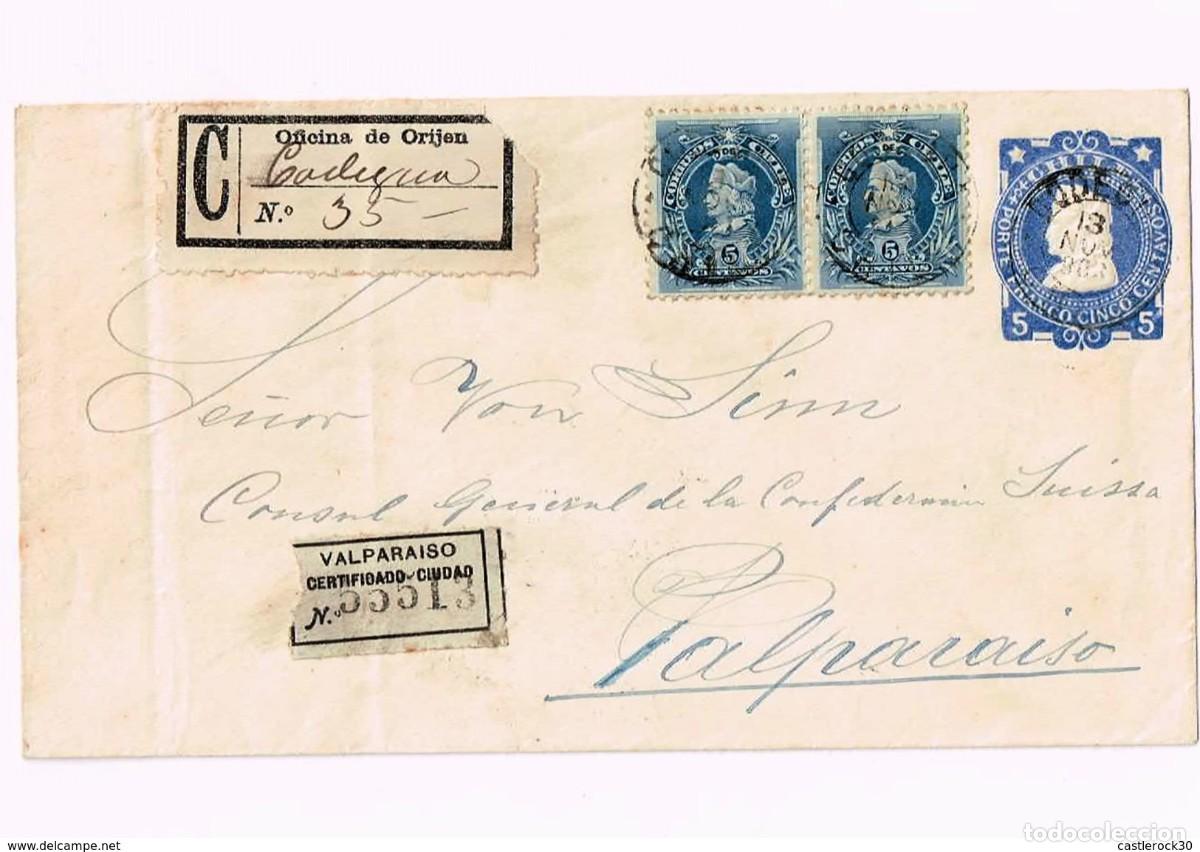 C
Oficina de Orijen
Codegua
N.º 35 -
CORREOS DE CHILE
5
CENTAVOS
CORREOS DE CHILE
5
CENTAVOS
CHILE
PORTE FRANCO CINCO CENTAVOS
5 5
13
NOV
Señor Von Sinn
Consul General de la Confederacion Suissa
VALPARAISO
CERTIFICADO-CIUDAD
N.º 55513
Valparaiso
todocoleccion
www.todocoleccion.net
castlerock30